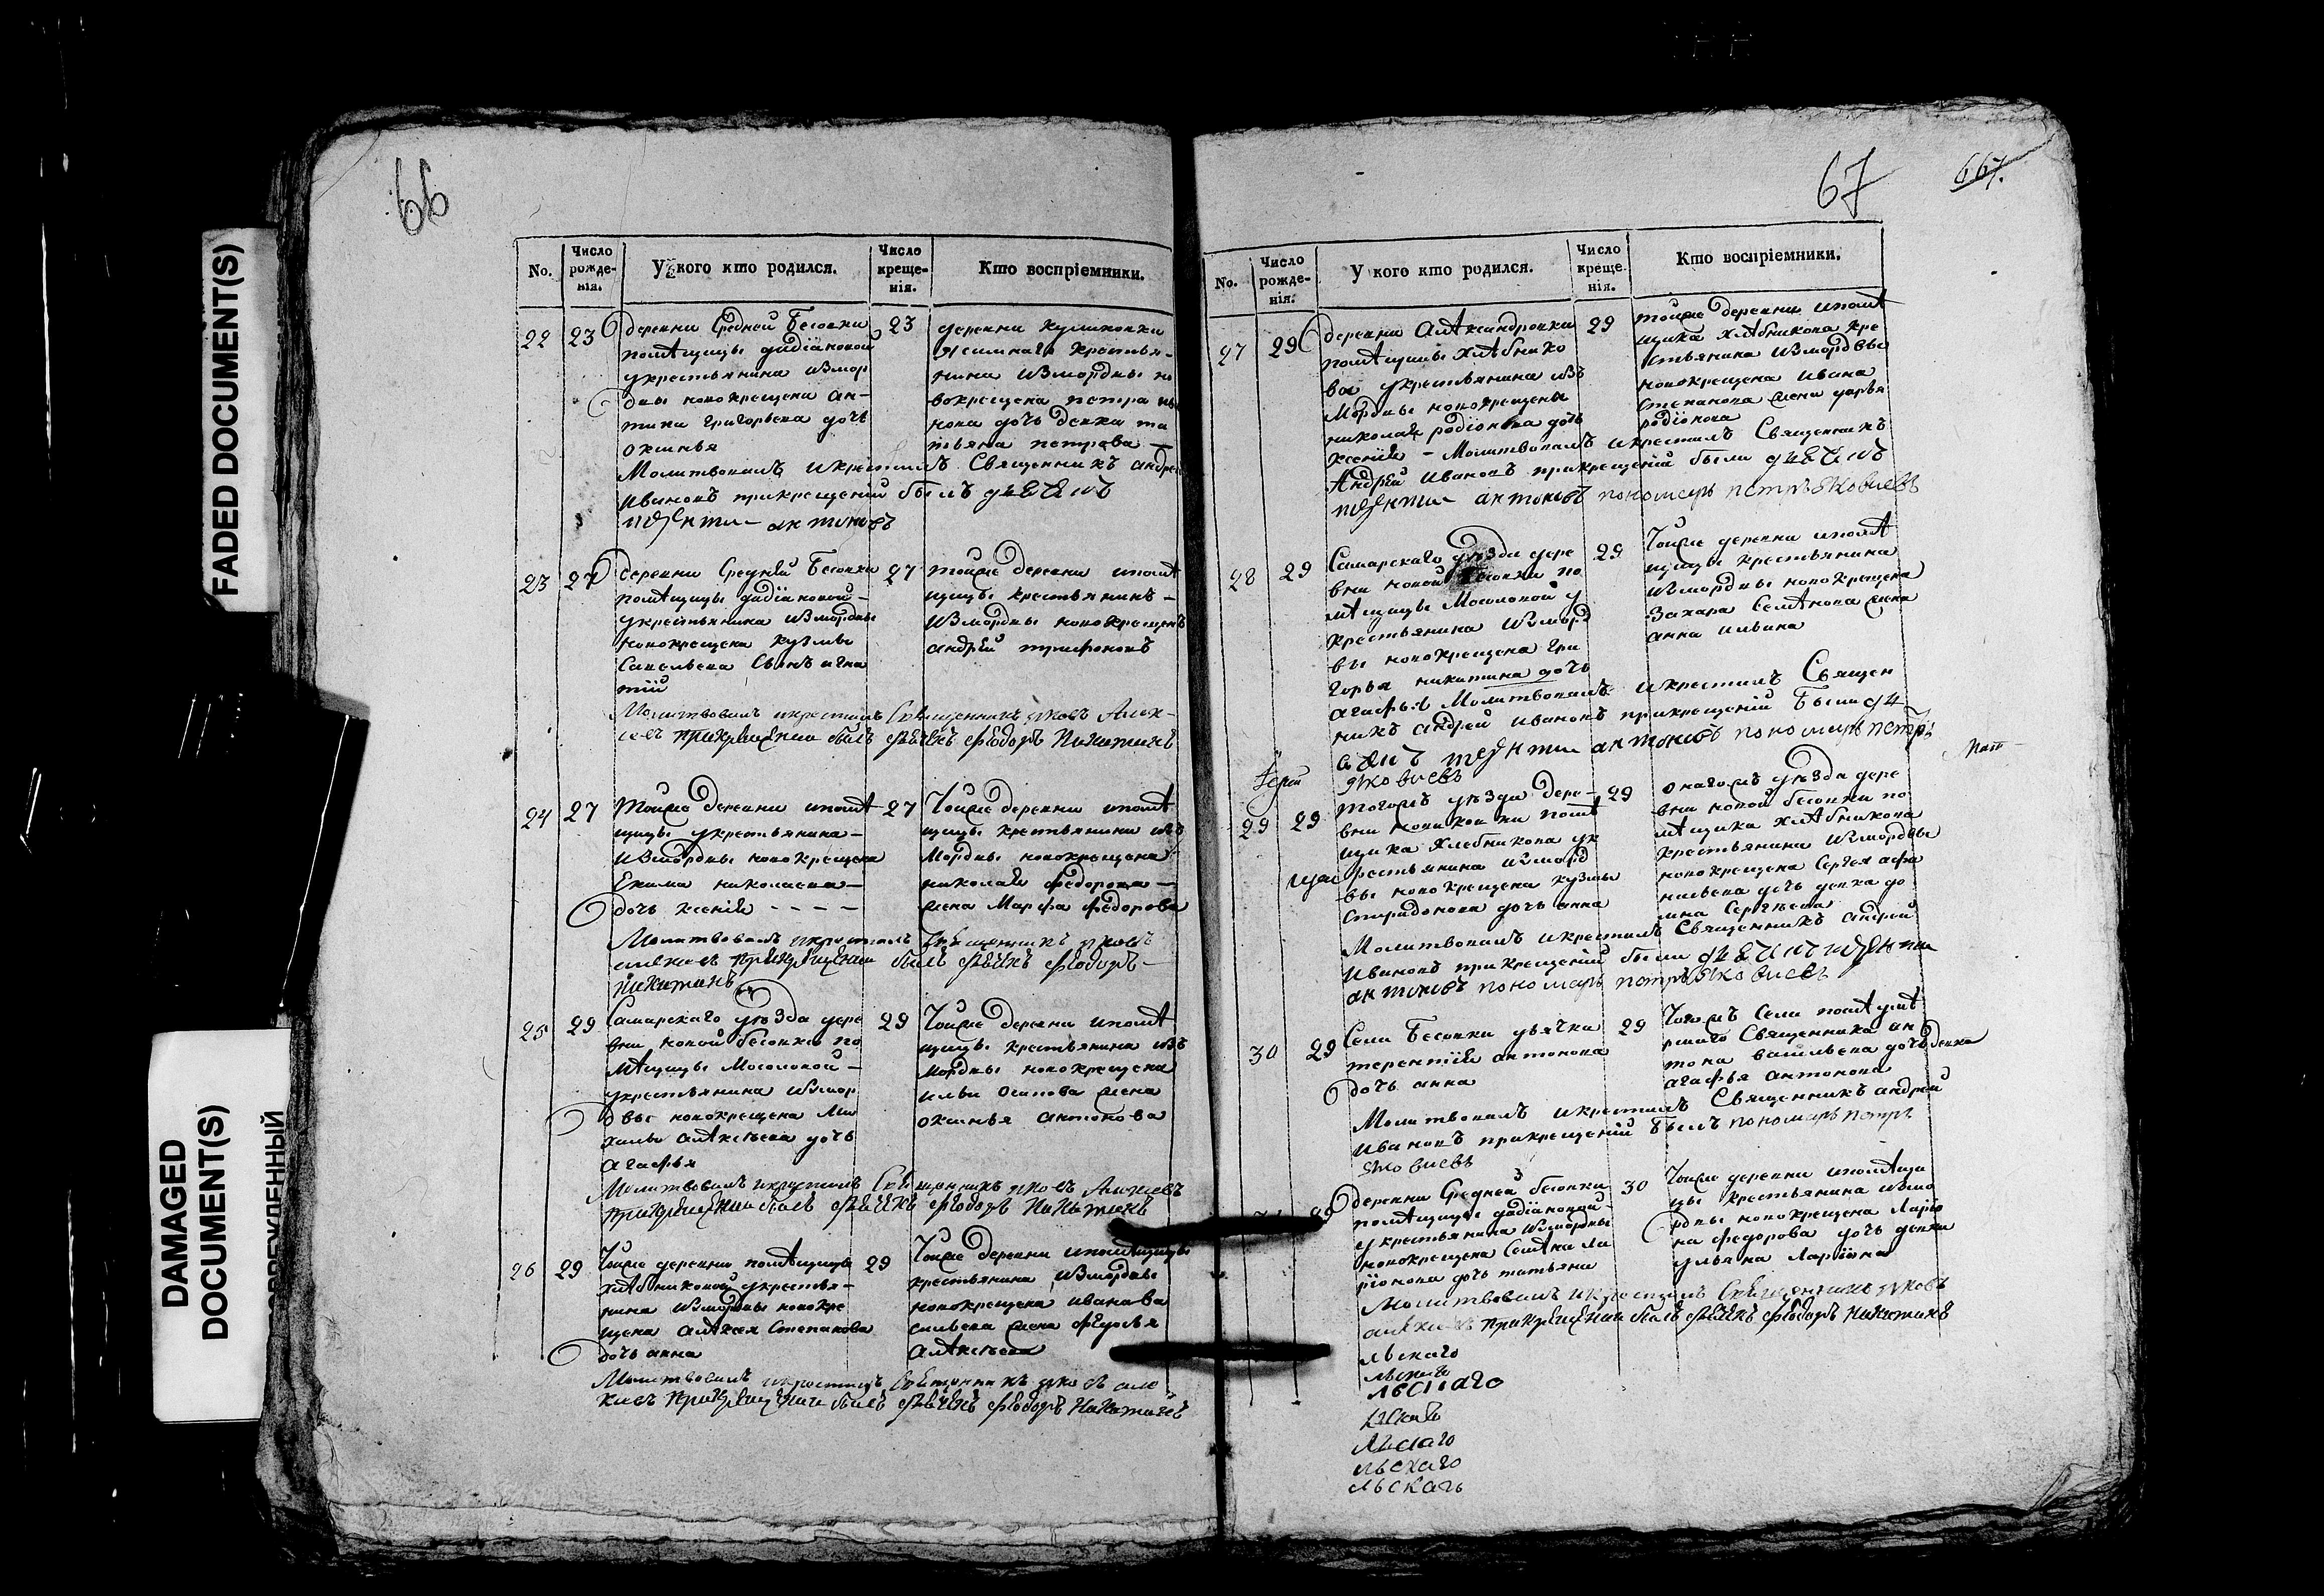 FADED DOCUMENT(S)
DAMAGED
DOCUMENT(S)
66
No.
Число рожде-нія.
У кого кто родился.
Число креще-нія.
Кто воспріемники.
22 23 деревни Средней Бесовки
помѣщицы дадіановой
укрестьянина измор
двы новокрещена ан-
типи григорьева дочь
оксинья
23 деревни куликовки
крестья-
нина измордвы но
вокрещена петра
нова дочь девка та
тьяна петрова
Молитвовалъ икрестилъ Священникъ андрей
Ивановъ прикрещеніи былъ дьячекъ
терентіи антоновъ
23 27 деревни Средней Бесовки
помѣщицы дадіановой
укрестьянина измордвы
новокрещена кузмы
Савельева Сынъ игна
тіи
27 тойже деревни ипомѣ
щицы крестьянинъ
Измордвы новокрещенъ
андрей трифоновъ
Молитвовалъ икрестилъ Священникъ яковъ Алек-
сеевъ прикрещеніи былъ дьячекъ Ѳеодоръ Никитинъ
24 27 тойже деревни ипомѣ
щицы укрестьянина
Измордвы новокрещена
Екима николаева
дочь ксенія
27 Тойже деревни ипомѣ
щицы крестьянина изъ
Мордвы новокрещена
николая федорова
жена Марфа федорова
Молитвовалъ икрестилъ Священникъ яковъ
алексеевъ прикрещеніи былъ дьячекъ Ѳеодоръ
Никитинъ
25 29 Самарскаго уѣзда дере
вни новой бесовки по
мѣщицы Мосоловой
укрестьянина измор
двы новокрещена Ми
хаилы алексѣева дочь
агафья
29 Тойже деревни ипомѣ
щицы крестьянина изъ
Мордвы новокрещена
ильи Осипова жена
оксинья антонова
Молитвовалъ икрестилъ Священникъ яковъ Алексеевъ
прикрещеніи былъ дьячекъ Ѳеодоръ Никитинъ
26 29 Тойже деревни помѣщицы
хлѣбниковой укрестья-
нина измордвы новокре
щена алексея Степанова
дочь анна
29 Тойже деревни ипомѣщицы
крестьянина Измордвы
новокрещена иванава
сильева жена федосья
алексѣева
Молитвовалъ икрестилъ Священникъ яковъ але
ксеевъ прикрещеніи былъ дьячекъ Ѳеодоръ Никитинъ
67
667.
No.
Число рожде-нія.
У кого кто родился.
Число креще-нія.
Кто воспріемники.
27 29 деревни Александровки
помѣщицы хлѣбнико
вой укрестьянина изъ
Мордвы новокрещена
николая родіонова дочь
ксенія
29 тойже деревни ипомѣ
щика хлѣбникова кре
стьянина Измордвы
новокрещена ивана
степанова жена дарья
родіонова
Молитвовалъ икрестилъ Священникъ
Андрей Ивановъ прикрещеніи были дьячекъ
терентіи антоновъ пономарь петръ яковлевъ
28 29 Самарскаго уѣзда дере
вни новой бесовки по
мѣщицы Мосоловой у
крестьянина Измор
вы новокрещена гри
горья никитина дочь
агафья
29 Тойже деревни ипомѣ
щицы крестьянина
измордвы новокрещена
Захара Семѣнова жена
анна ильина
Молитвовалъ икрестилъ Священ
никъ андрей ивановъ прикрещеніи были дьячекъ
терентіи антоновъ пономарь петръ
яковлевъ
29 29 тогожъ уѣзда дере-
вни помѣ
щика хлебникова ук
рестьянина измор
вы новокрещена кузмы
Спиридонова дочь анна
29 онагожъ уѣзда дере
вни новой бесовки по
мѣщика хлѣбникова
крестьянина измордвы
новокрещена Сергея афа
насьева дочь девка до
мна Сергѣева
Молитвовалъ икрестилъ Священникъ андрей
Ивановъ прикрещеніи были дьячекъ терентіи
антоновъ пономарь петръ яковлевъ
30 29 Села Бесовки удьячка
терентія антонова
дочь анна
29 Тогожъ Села помѣ
Священника ан
тона васильева дочь девка
агафья антонова
Молитвовалъ икрестилъ Священникъ андрей
ивановъ прикрещеніи былъ пономарь петръ
яковлевъ
деревни Средней бесовки
помѣщицы дадіановой
укрестьянина измордвы
новокрещена Семѣна ла
ріонова дочь татьяна
30 Тойже деревни ипомѣщи
цы крестьянина измо
рдвы новокрещена Ларіо
на федорова дочь девка
ульяна Ларіона
Молитвовалъ икрестилъ Священникъ яковъ
алексеевъ прикрещеніи былъ дьячекъ Ѳеодоръ Никитинъ
льскаго
льскаго
льскаго
льскаго
льскаго
льскаго